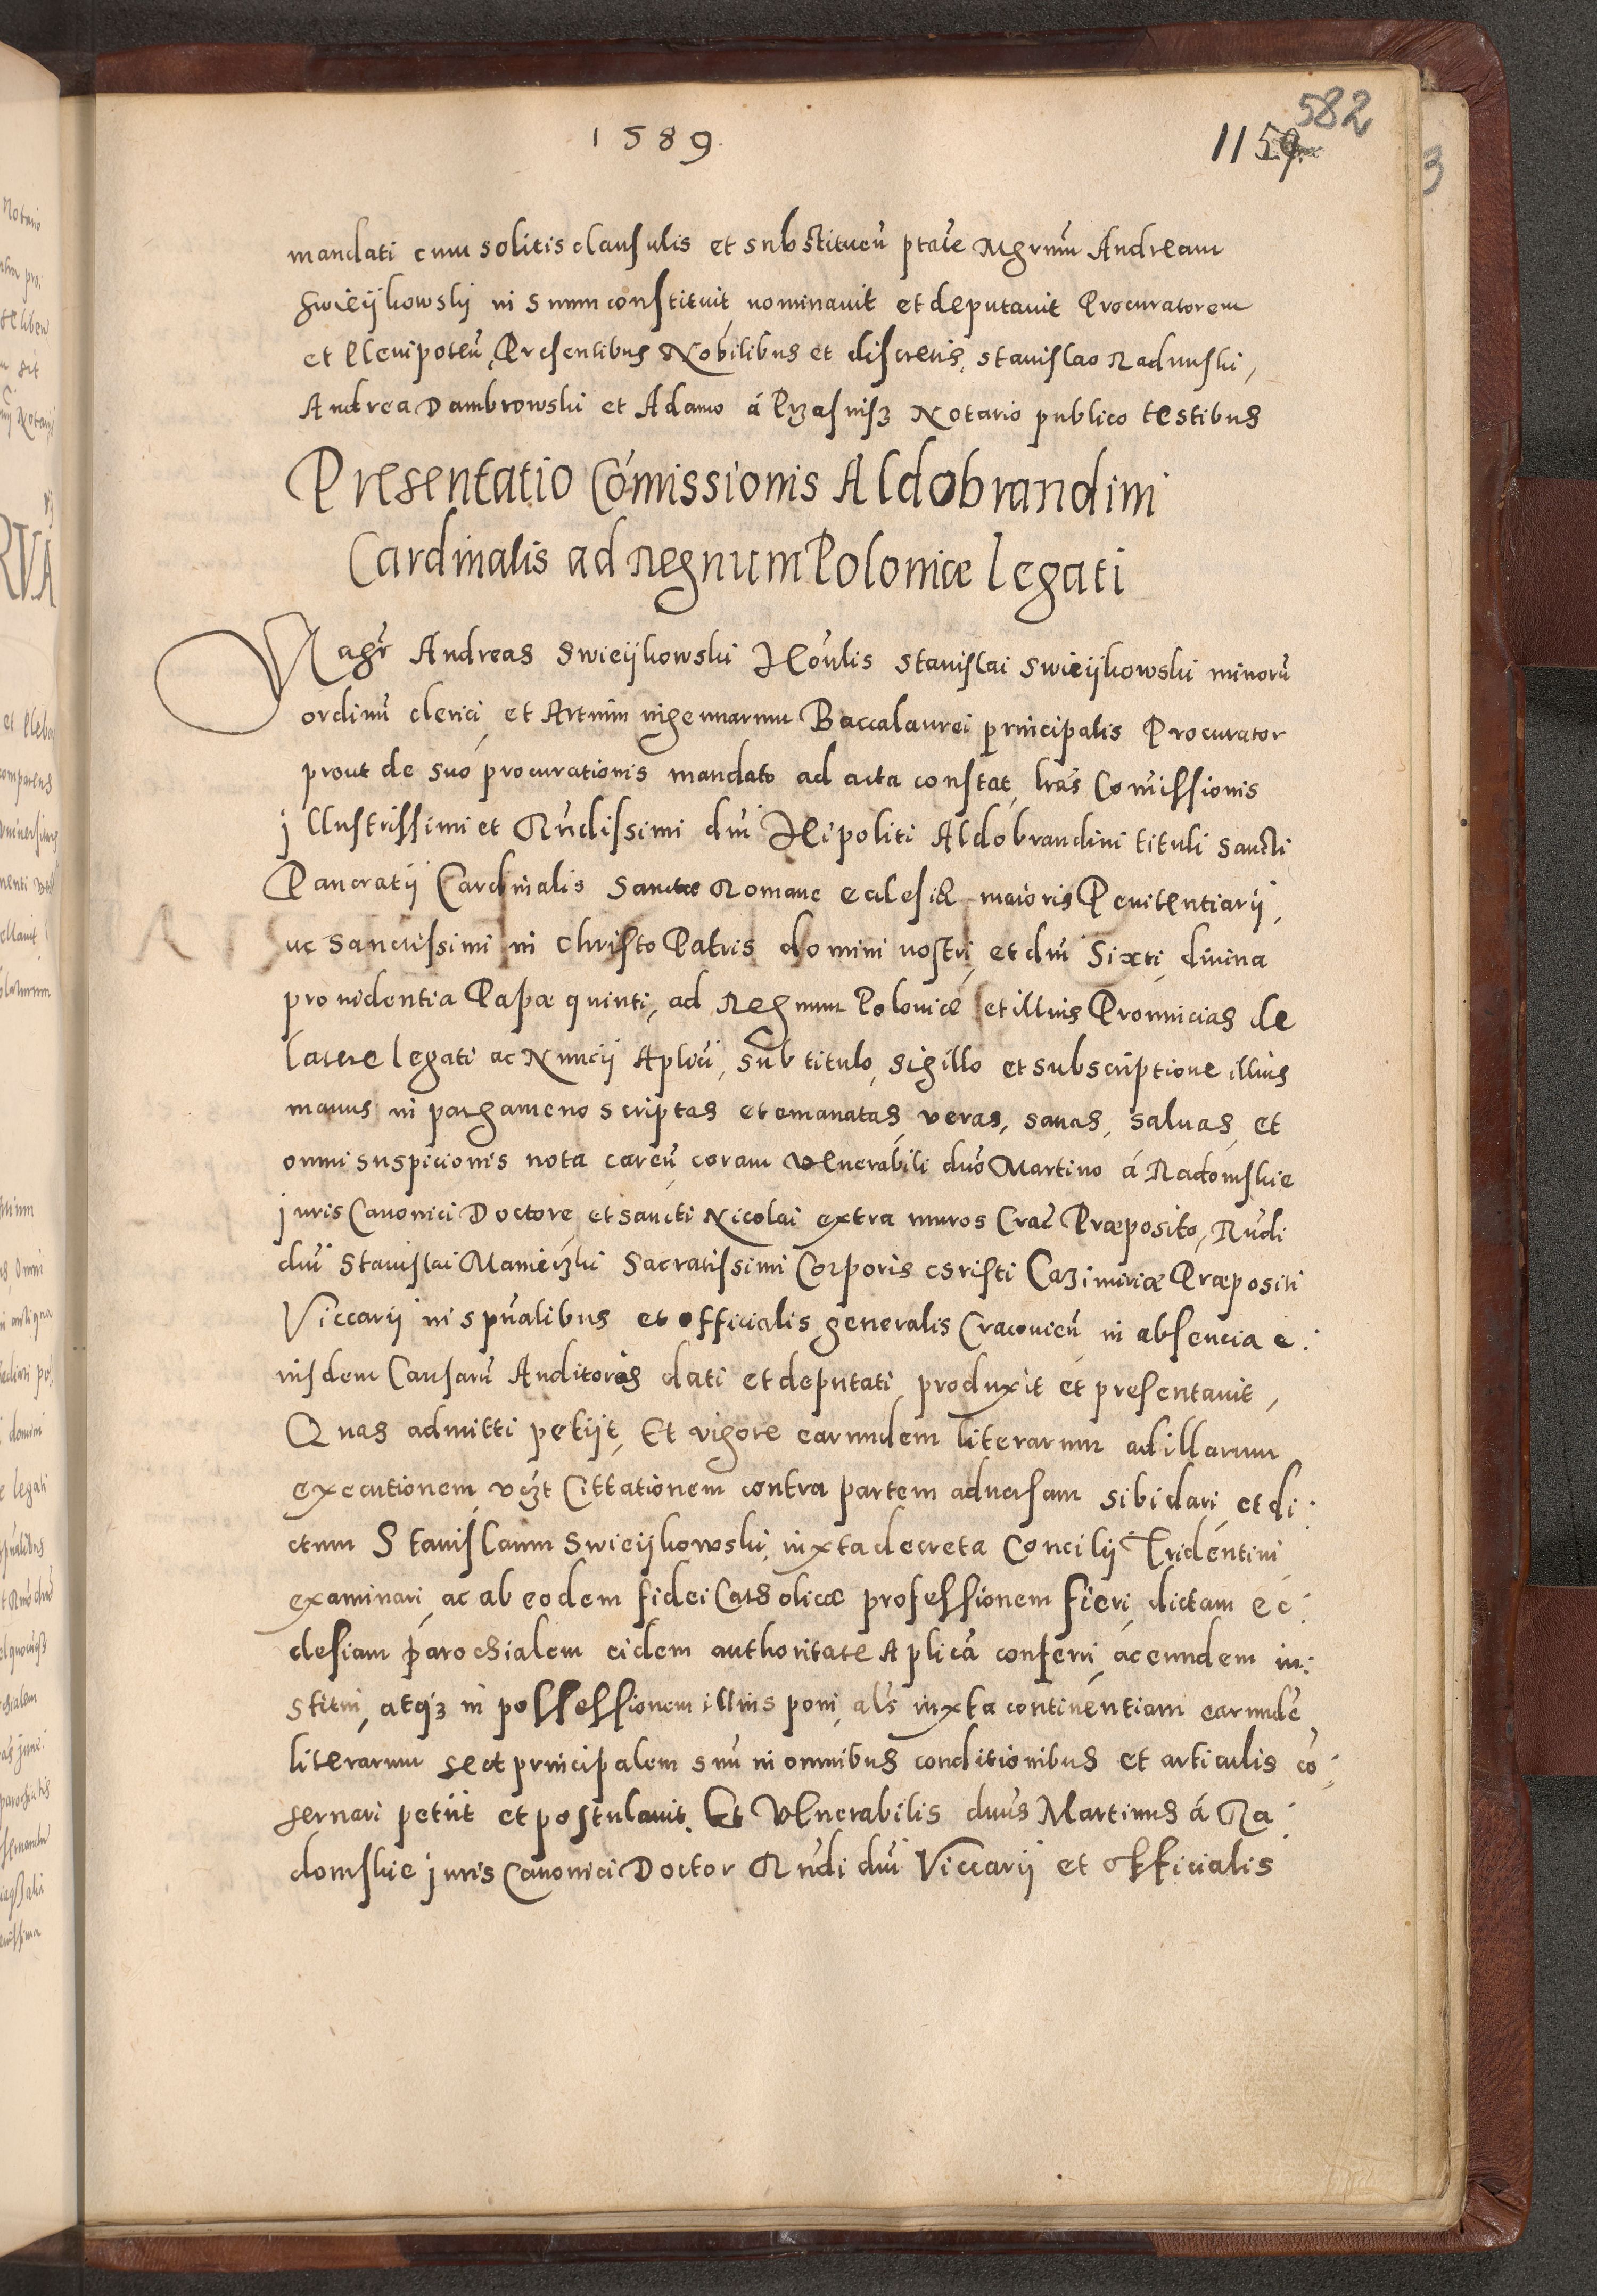 1589
1159
582
3
mandati cum solitis clausulis et substitueñ ptate Mgrum Andream
Swieykowsky in suum constituit nominavit et deputavit Procuratorem
et Plenipoteñ, Presentibus Nobilibus et discretis, Stanislao Radunski,
Andrea Dambrowski et Adamo á Przasnisz Notario publico testibus
Presentatio Cōmissionis Aldobrandini
Cardinalis ad Regnum Poloniæ Legati
Magr̄ Andreas Swieijkowski Hōnlis Stanislai Swieijkowski minorū
ordinū clerici, et Artium ingenuarum Baccalaurei principalis Procurator
prout de suo procurationis mandato ad acta constat, lrās Com̄issionis
jllustrissimi et Rn̄dissimi dnī Hipoliti Aldobrandini tituli sancti
Pancratij Cardinalis Sanctæ Romane ecclesiæ maioris Penitentiarij,
ac Sanctissimi in Christo Patris domini nostri, et dnī Sixti, divina
providentia Papæ quinti, ad Regnum Poloniæ et illius Provincias de
latere legati ac Nuncij Aplici, sub titulo, sigillo et subscriptione illius
manus in pargameno scriptas et emanatas, veras, sanas, salvas, et
omni suspicionis nota careñ, coram Venerabili dno Martino á Radomskie
juris Canonici Doctore, et sancti Nicolai extra muros Crac̄ Præposito, Rn̄di
dnī Stanislai Manierzki Sacratissimi Corporis csristi Cazimiriæ Præpositi
Viccarij in spūalibus et officialis generalis Cracovieñ in absencia e:
iusdem Causarū Auditoris dati et deputati, produxit et presentavit,
Quas admitti petijt, Et vigore earundem literarum ad illarum
executionem, vczt Cittationem contra partem adversam sibi dari, et di:
ctum Stanislaum Swieijkowski, iuxta decreta Concilij Tridentini
examinari, ac ab eodem fidei Catholicæ professionem fieri, dictam ec:
clesiam parochialem eidem authoritate Aplica conferri, ac eundem in:
stitui, atqz in possessionem illius poni, als iuxta continentiam earundē
literarum se et principalem suū in omnibus conditionibus et articulis cō:
servari petiit et postulavit. Et Venerabilis dnus Martinus á Ra:
domskie juris Canonici Doctor Rn̄di dnī Viccarij et officialis